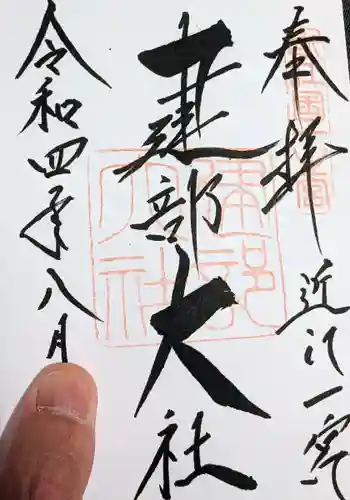 奉拝
近江一宮
建部大社
令和四年八月
建部大社